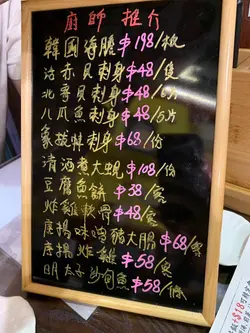 廚師推介
韓國海膽$198/板
活赤貝刺身$48/隻
北寄貝刺身$48/5片
八爪魚刺身$48/5片
象拔蚌刺身$68/份
清酒煮大蜆$108/份
豆腐魚餅$38/客
炸雞軟骨$48/客
唐揚味噌豬大腸$68/客
唐揚炸雞$58/客
明太子沙甸魚$58/條